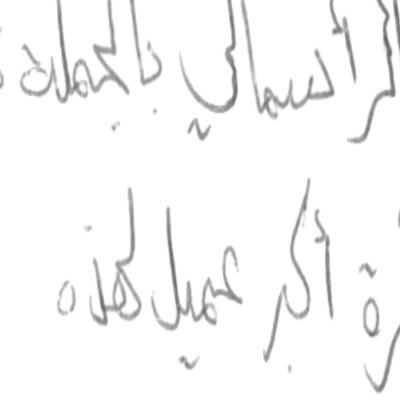 الرأسمالي بالجملة
أكبر عميل لهذه